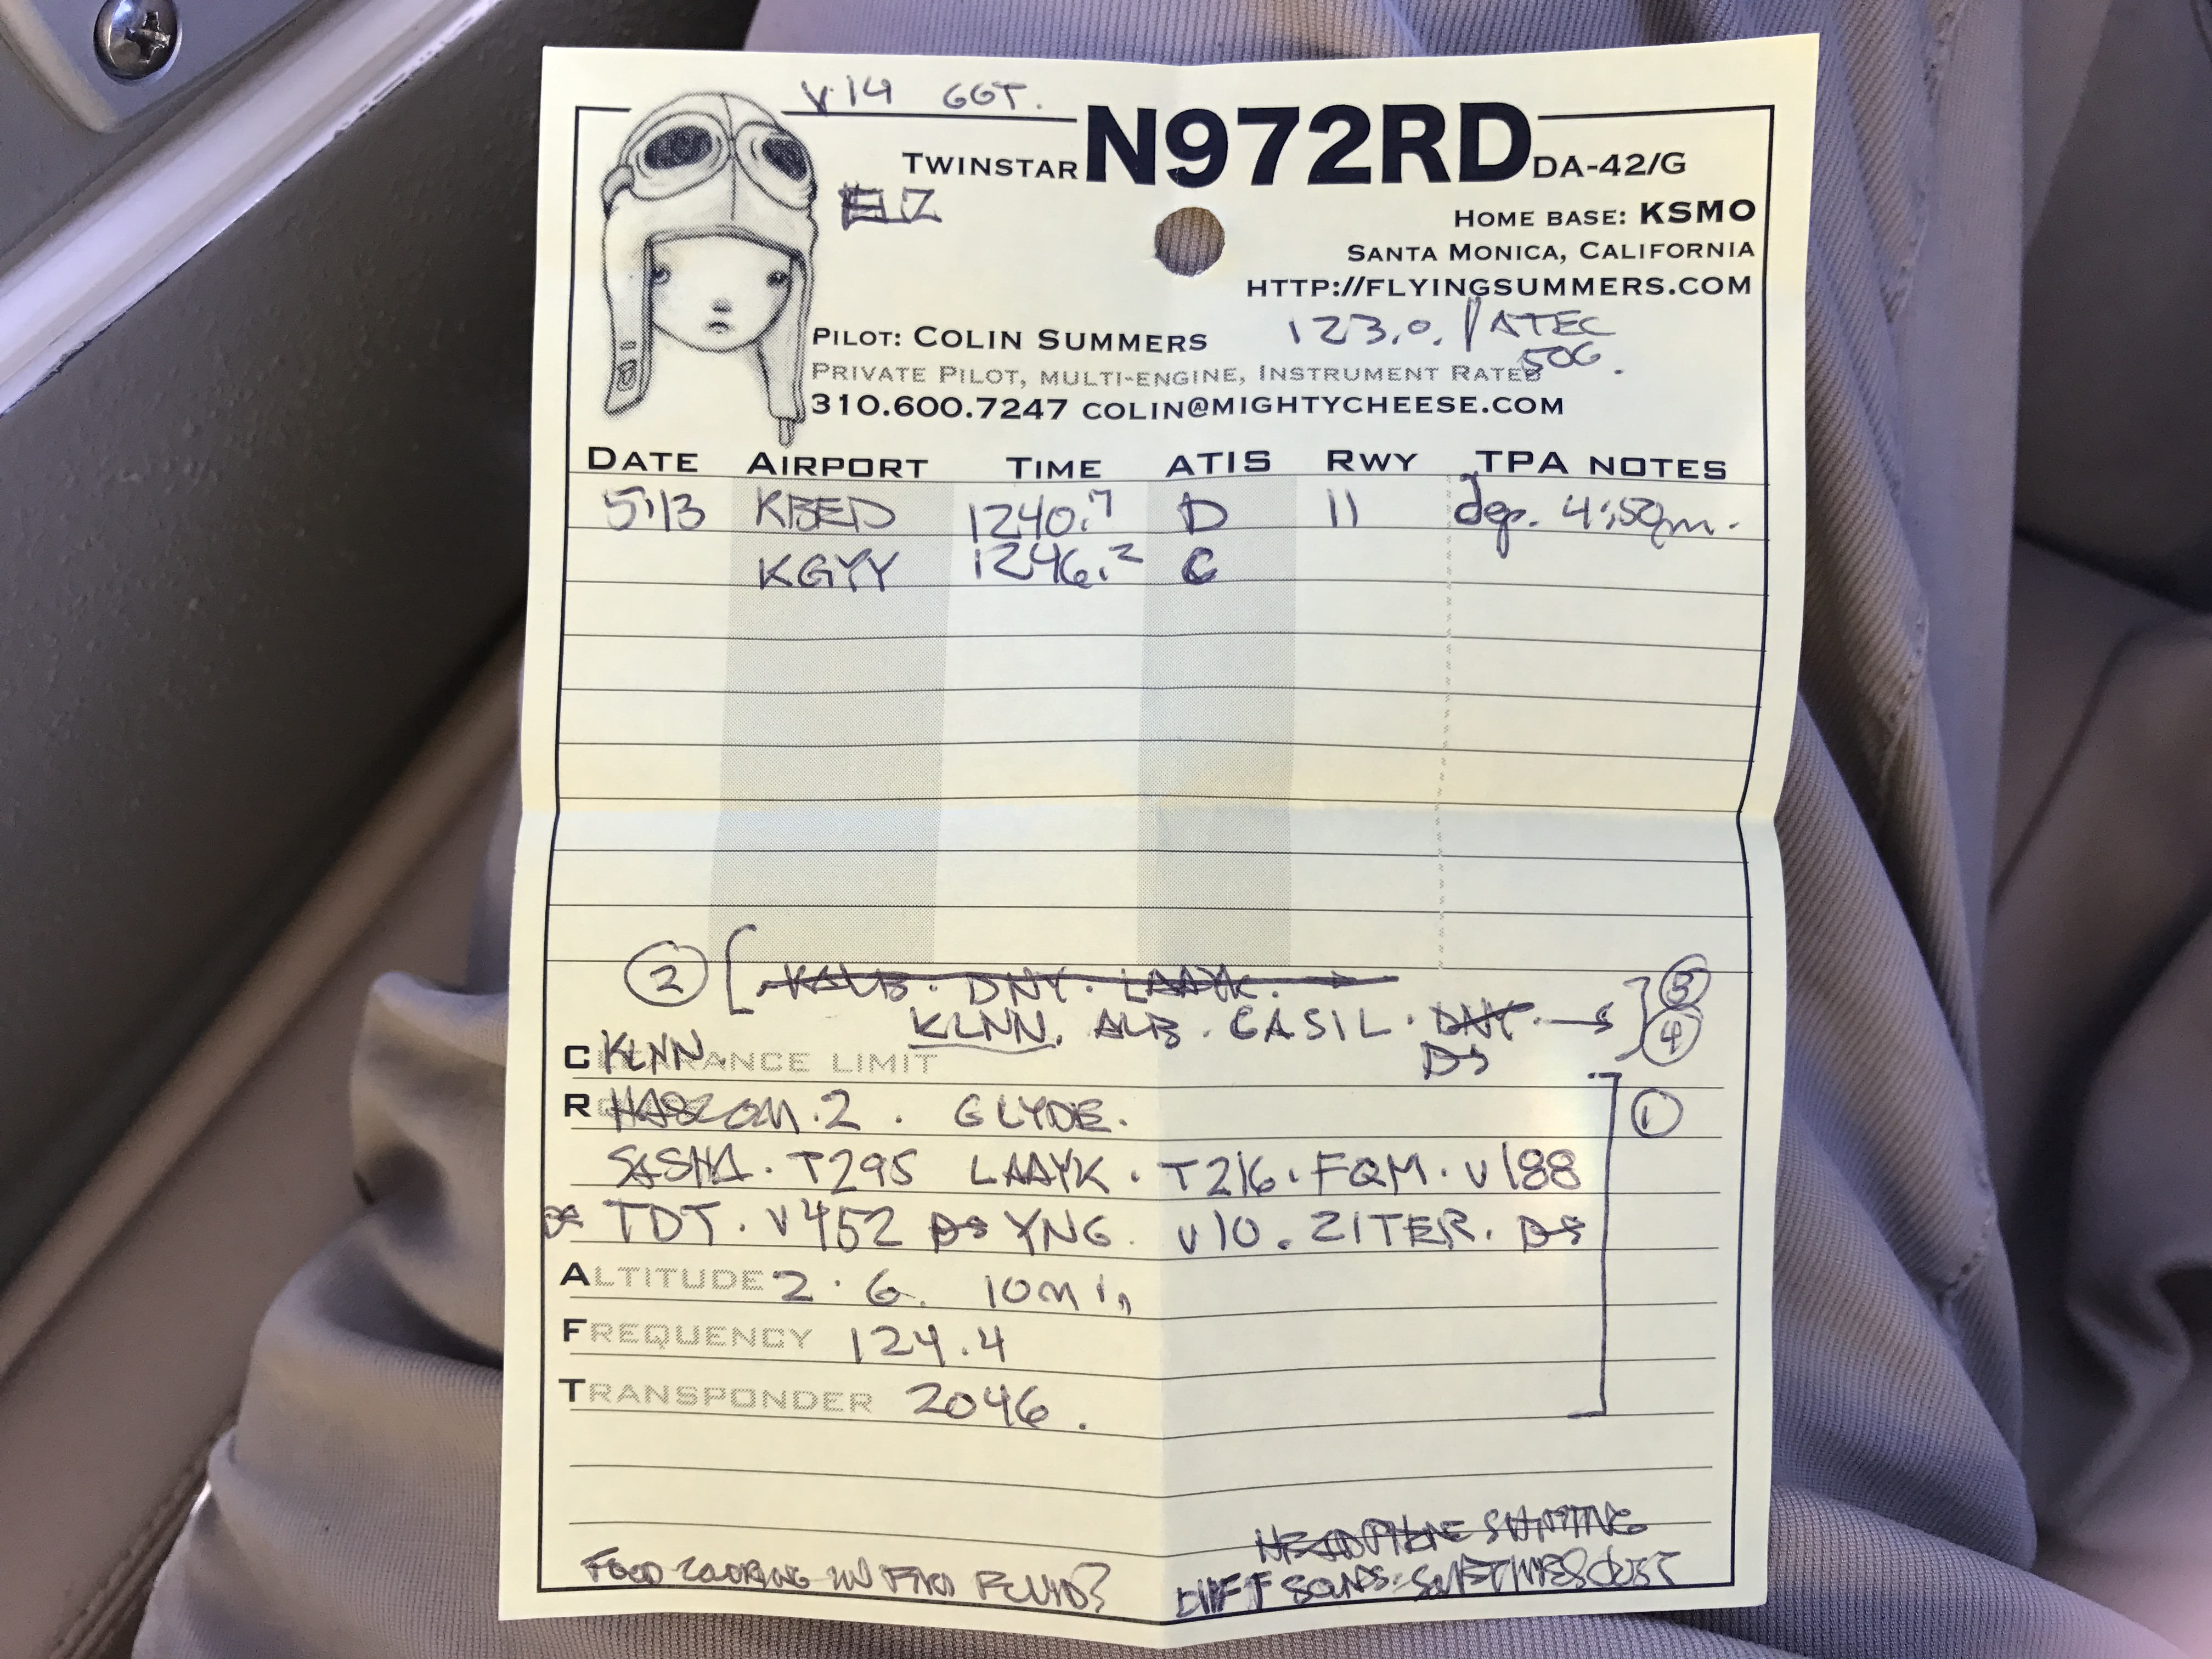 V14 GGT.
TWINSTAR N972RD DA-42/G
HOME BASE: KSMO
SANTA MONICA, CALIFORNIA
HTTP://FLYINGSUMMERS.COM
123.0. / ATEC
50G.
PILOT: COLIN SUMMERS
PRIVATE PILOT, MULTI-ENGINE, INSTRUMENT RATED
310.600.7247 COLIN@MIGHTYCHEESE.COM
DATE AIRPORT TIME ATIS RWY TPA NOTES
5/13 KBED 1240.7 D 11 dep. 4:50pm.
KGYY 1246.2 C
2 DNY. LAAYK. 3
KLNN. ALB. CASIL. DNY. 4
D
KLNN. CLEARANCE LIMIT
R HASCOM.2. GLYDE. 1
SASHA. T295 LAAYK. T216. FQM. V188
TDT. V452 YNG. V10. ZITER. D
ALTITUDE 2.6. 10min
FREQUENCY 124.4
TRANSPONDER 2046.
FOOD COLORING IN FLUID?
HEADPHONE
DIFF SOUNDS.